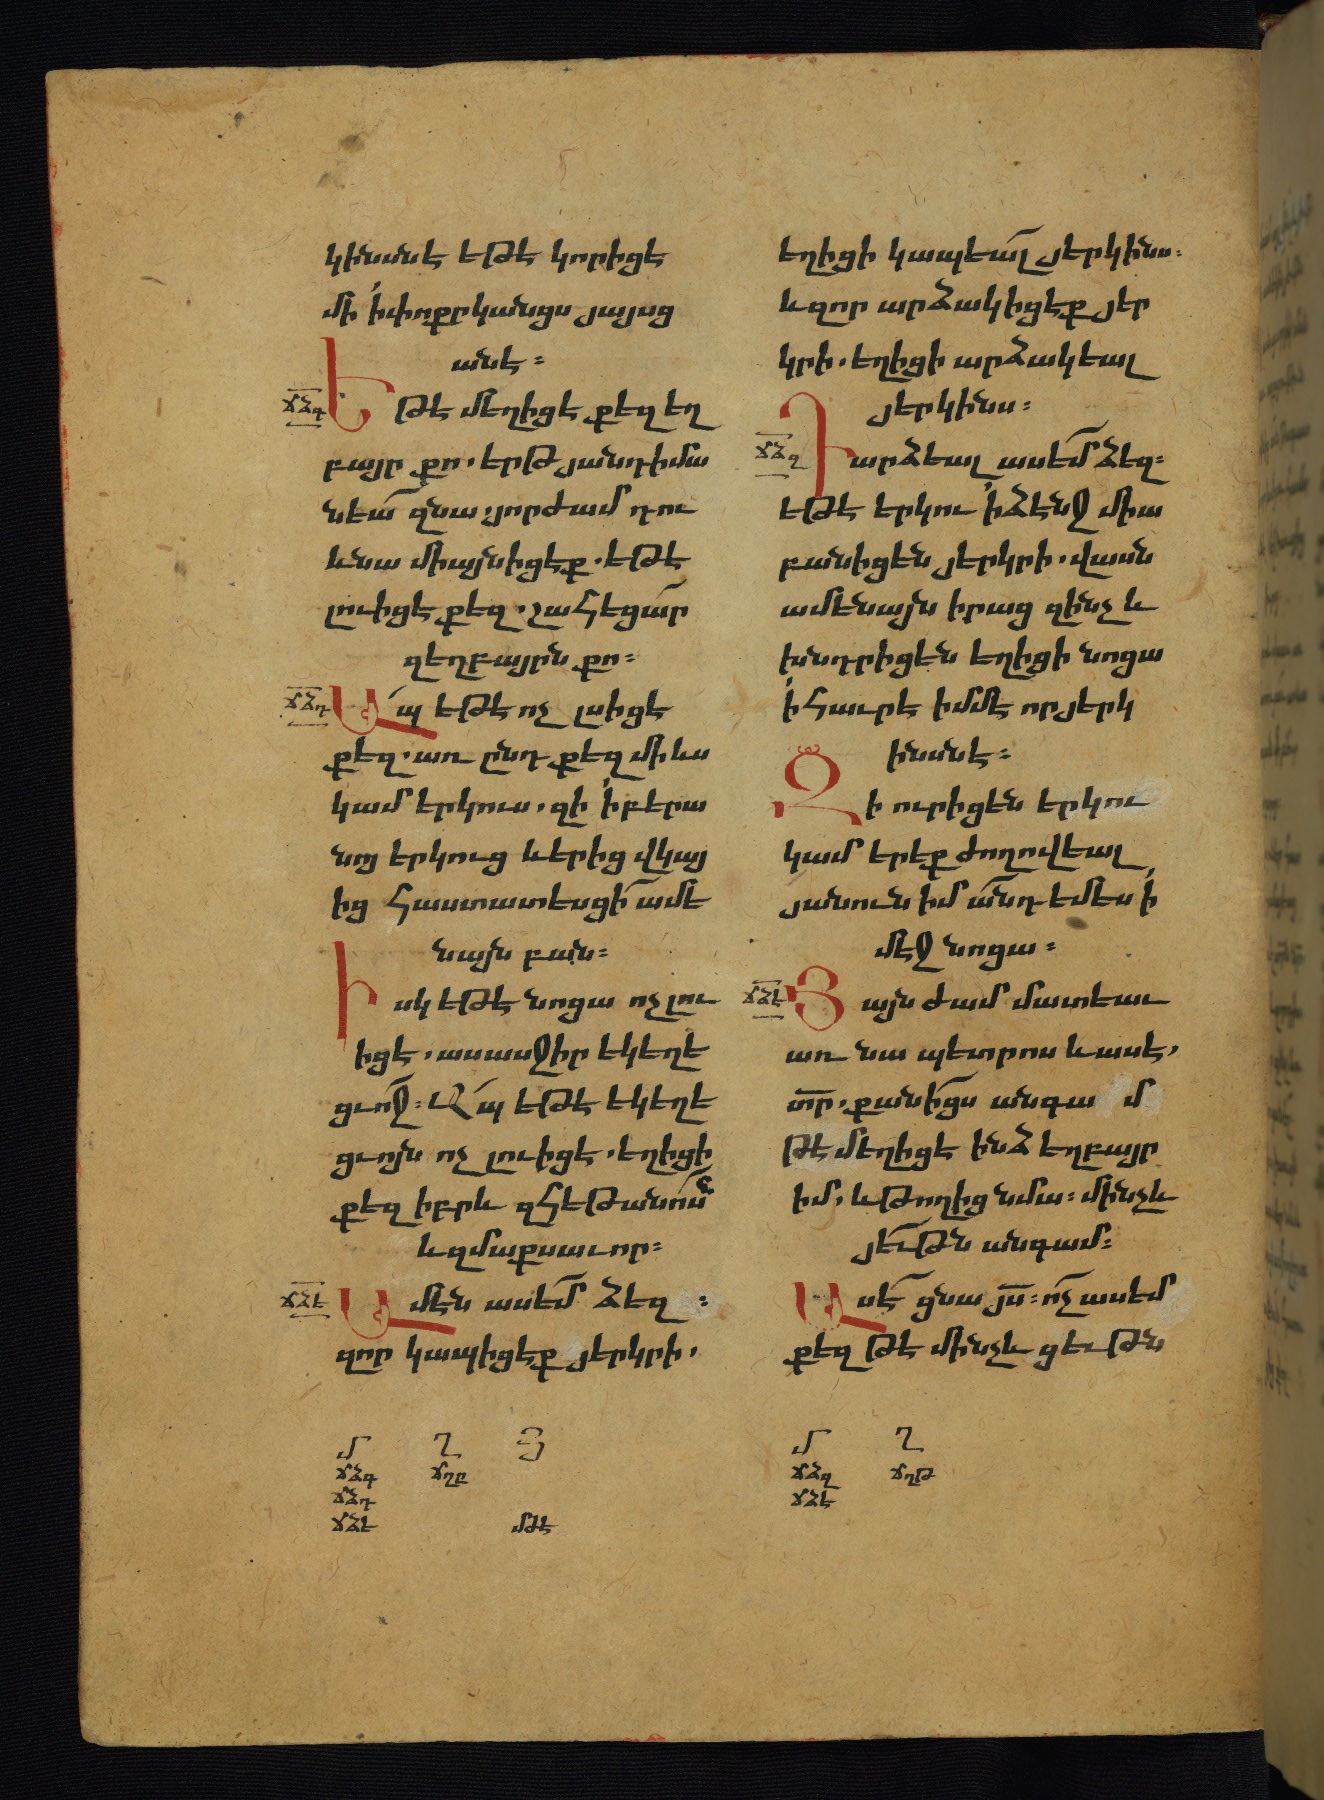 կինսնէ եթէ կորիցէ
մի ՛ի փոքրկանցս յայսց
անէ :
ՃՁԳ Եթէ մեղիցէ քեզ եղ
բայր քո . երթ յանդիմա
նեա՛ զնա . յորժամ դու
և նա միայնիցէք . եթէ
լուիցէ քեզ . շահեցա՛ր
զեղբայրն քո :
ՃՁԴ Ապ եթէ ոչ լսիցէ
քեզ . առ ընդ քեզ մի ևս
կամ երկուս . զի ՛ի բերա
նոյ երկուց և երից վկայ
ից հաստատեսցի՛ ամե
նայն բան :
Իսկ եթէ նոցա ոչ լու
իցէ . ասասջիր եկեղե
ցւո՛ջ : Ապ եթէ եկեղե
ցւոյն ոչ լուիցէ . եղիցի
քեզ իբրև զհեթանո՛ս
և զմաքսաւոր :
ՃՁԵ Ամէն ասե՛մ ձեզ :
զոր կապիցէք յերկրի .
եղիցի կապեա՛լ յերկինս :
և զոր արձակիցէք յեր
կրի . եղիցի արձակեալ
յերկինս :
ՃՁԶ Դարձեալ ասե՛մ ձեզ :
եթէ երկու ՛ի ձէնջ միա
բանիցեն յերկրի . վասն
ամենայն իրաց զինչ և
խնդրիցեն եղիցի նոցա
՛ի հաւրէ իմմէ որ յերկ
ինսնէ :
Զի ուր իցեն երկու
կամ երեք ժողովեալ
յանուն իմ ա՛նդ եմ ես ՛ի
մէջ նոցա :
ՃՁԷ Յայն ժամ մատեաւ
առ նա պետրոս և ասէ .
տր . քանի՛ցս անգամ
թէ մեղիցէ ինձ եղբայր
իմ . և թողից նմա : մինչև
յե՛ւթն անգամ :
Ասէ՛ ցնա յս : ո՛չ ասեմ
քեզ թէ մինչև ցեւթն
Մ Ղ Յ
ՃՁԳ ՃՂԸ
ՃՁԴ
ՃՁԵ ՄԺԵ
Մ Ղ
ՃՁԶ ՃՂԹ
ՃՁԷ